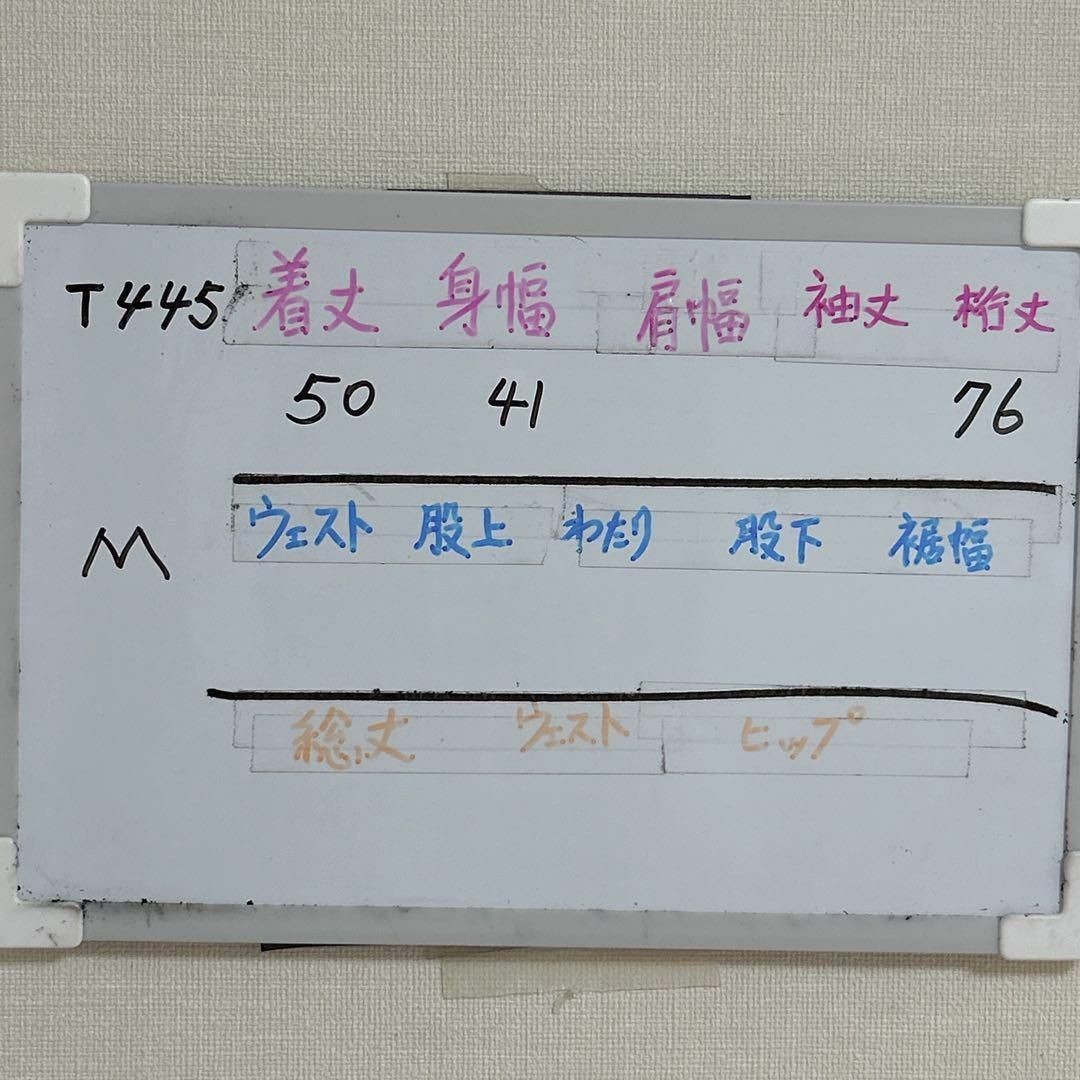 T445 着丈 身幅 肩幅 袖丈 裄丈
50 41 76
M ウェスト 股上 わたり 股下 裾幅
総丈 ウェスト ヒップ